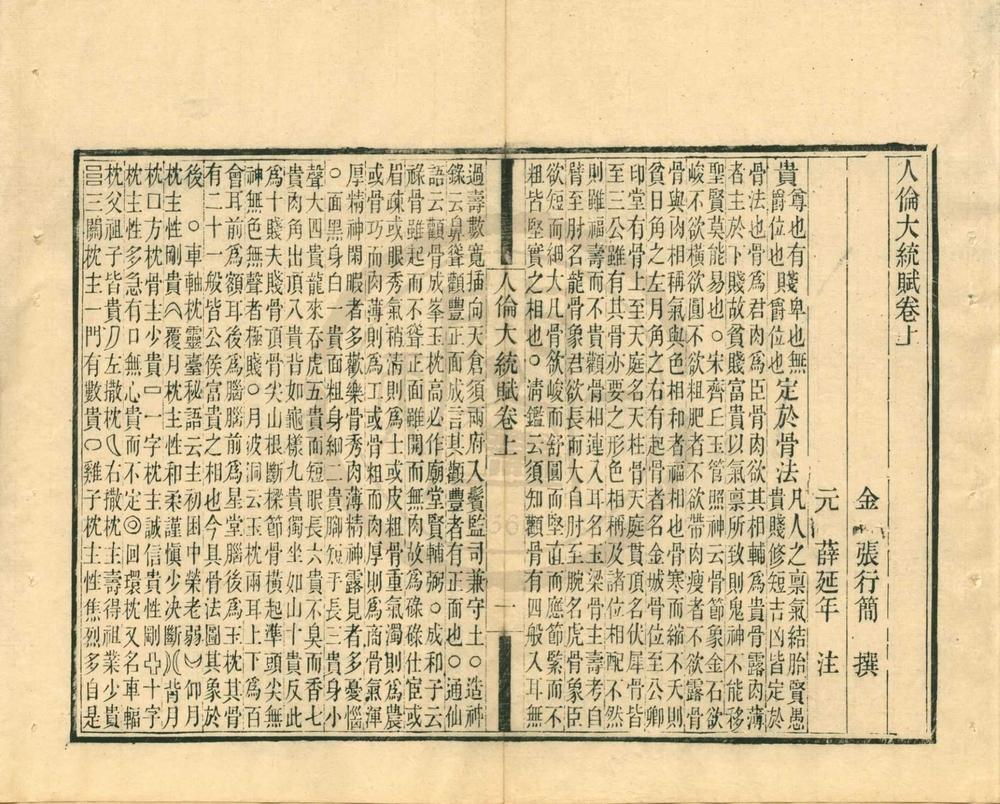 人倫大統賦卷上
金 張行簡 撰
元 薛延年 注
貴尊也有賤卑也無定於骨法凡人之稟氣結胎賢愚
爵位也貝爵位也貴賤修短吉凶皆定於
骨法也骨爲君肉爲臣骨肉欲其相輔爲貴骨露肉薄
者主於下賤故貧賤富貴以氣稟所致則鬼神不能移
聖賢莫能易也○宋齊丘玉管照神云骨節象金石欲
峻不欲橫欲圓不欲粗肥者不欲帶肉瘦者不欲露骨
骨與肉相稱氣與色相和者福相也骨寒而縮不夭則
貧日角之左月角之右有起骨者名金城骨位至公卿
印堂有骨上至天庭名天柱骨天庭貫頂名伏犀骨皆
至三公雖有其骨亦要之形色相稱及諸位相配不然
則雖福壽而不貴顴骨相連入耳名玉梁骨主壽考自
臂至肘名龍骨象君欲長而大自肘至腕名虎骨象臣
欲短而細大凡骨欲峻而舒圓而堅直而應節緊而不
粗皆堅實之相也○淸鑑云須知顴骨有四般入耳無
人倫大統賦卷上 一
過壽數寬插向天倉須兩府入鬢監司兼守土○造神
錄云鼻聳顴豐正面成言其顴豐者有正面也○通仙
語云顴骨成峯玉枕高必作廟堂賢輔弼○成和子云
祿骨雖起而不聳正面雖開而無肉故爲碌碌仕宦或
眉疎或眼秀氣稍淸則爲士或皮粗骨重氣濁則爲農
或骨巧而肉薄則爲工或骨粗而肉厚則爲商骨氣渾
厚精神閑暇者多歡樂骨秀肉薄精神露見者多憂惱
○面黑身白一貴面粗身細二貴脚短手長三貴身小
聲大四貴龍來吞虎五貴面短眼長六貴不臭而香七
貴肉角出頂八貴背如龜樣九貴獨坐如山十貴反此
爲十賤夫賤骨頂尖山根斷樑節骨橫起準頭尖無
神無色無聲者極賤○月波洞云玉枕兩耳上下爲百
會耳前爲額耳後爲腦腦前爲星堂腦後爲玉枕其骨
有二十一般皆公侯富貴之相也今具骨法圖其象於
後○車軸枕靈臺秘語云主初困中榮老弱仰月
枕主性剛貴覆月枕主性和柔謹愼少决斷背月
枕口方枕骨主少貴一字枕主誠信貴性剛十字
枕主性多急有口無心貴而不定回環枕又名車輻
枕父祖子皆貴左撒枕右撒枕主壽得祖業少貴
三關枕主一門有數貴○雞子枕主性焦烈多自是